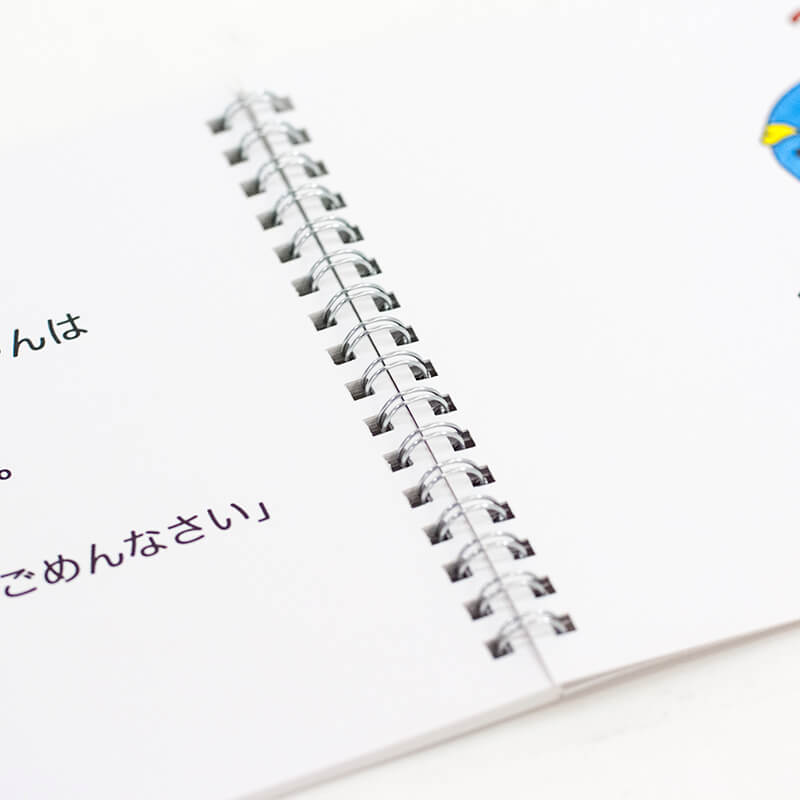 んは
。
ごめんなさい」